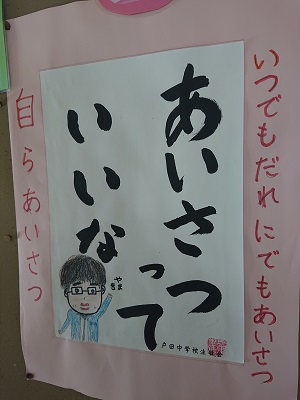 いつでもだれにでもあいさつ
あいさつって
いいな
やまき
戸田中学校生徒会
自らあいさつ